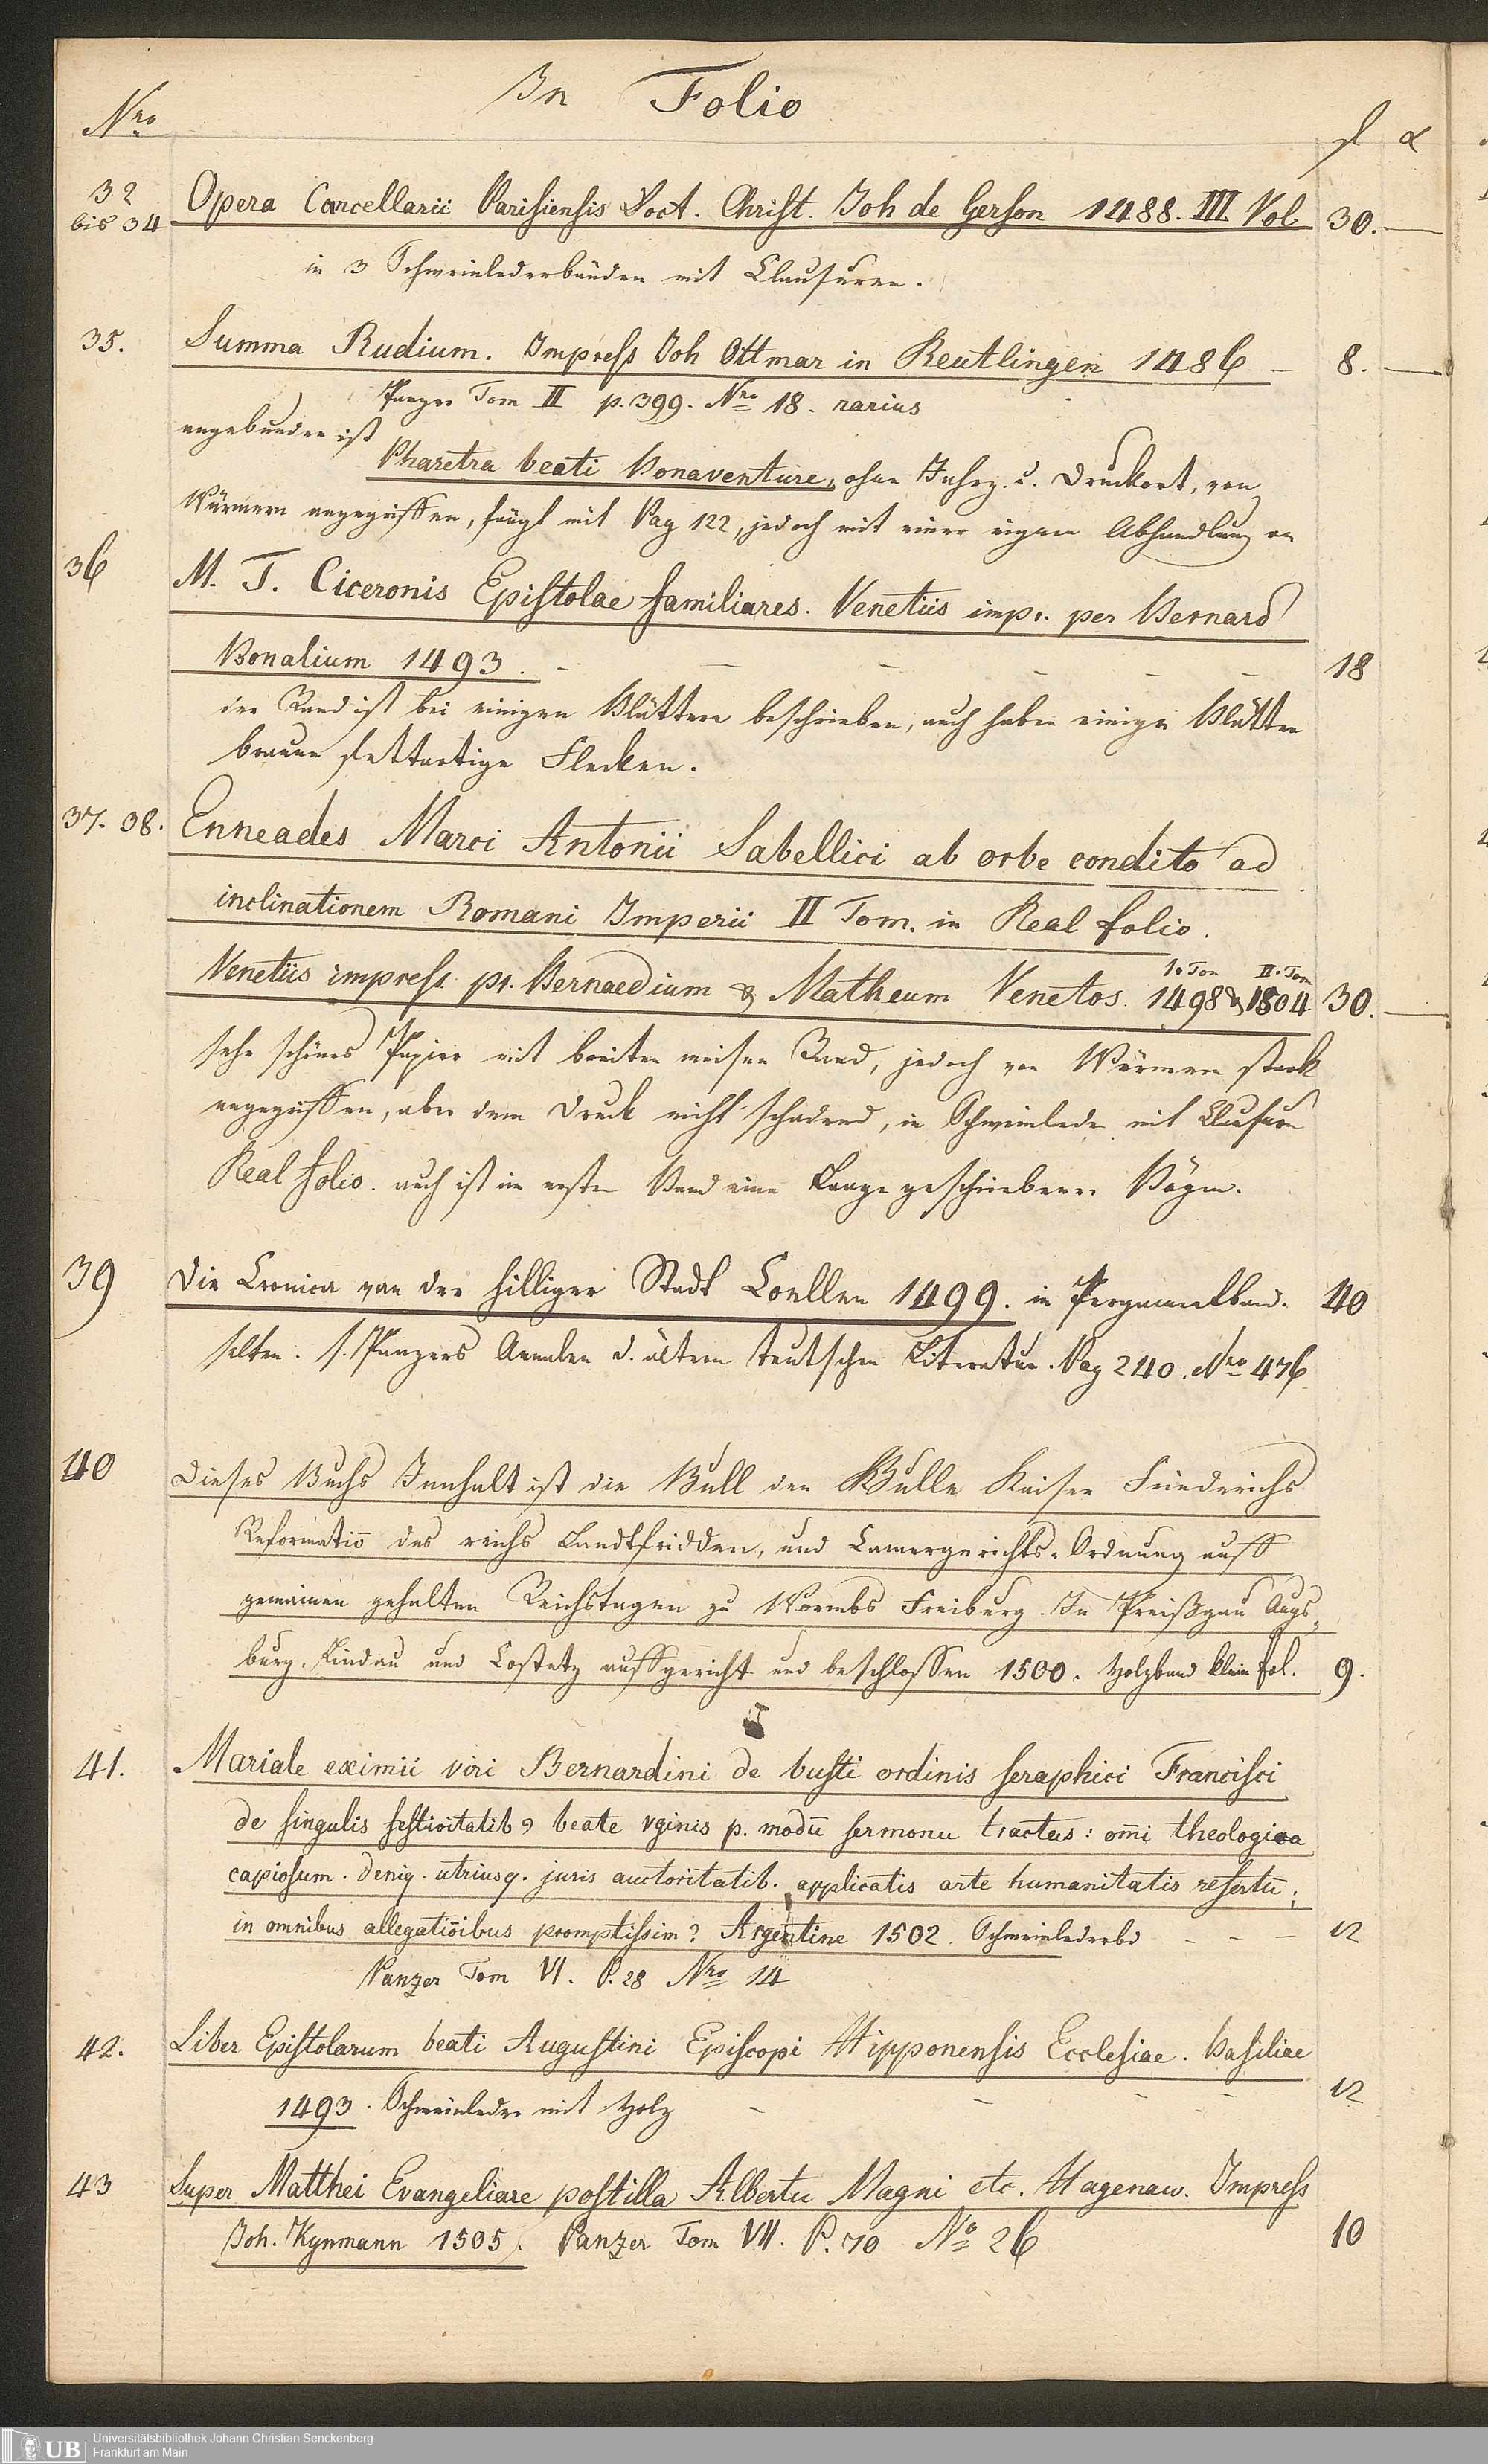 In Folio
Nro
fl x
32 bis 34 Opera Cancellarii Parisiensis Doct. Christ. Joh de Gerson 1488. III. Vol 30.—
in 3 Schweinlederbänden mit Clausuren.
35. Summa Rudium. Impress Joh Ottmar in Reutlingen 1486 — 8.—
Panzer Tom II p. 399. Nro 18. rarius
angebunden ist
Pharetra beati Bonaventure, ohne Jahrz. u. Druckort, von
Würmern angegriffen, fängt mit Pag 122, jedoch mit einer eigenen Abhandlung an
36 M. T. Ciceronis Epistolae familiares. Venetiis impr. per Bernard
Bonalium 1493. — — — — — — 18
der Rand ist bei einigen Blättern beschrieben, auch haben einige Blätter
braune fettartige Flecken.
37. 38. Enneades Marci Antonii Sabellici ab orbe condito ad
inclinationem Romani Imperii II Tom. in Real folio.
1. Tom II. Tom
Venetiis impress. pr. Bernardium & Matheum Venetos. 1498 & 1504 30.—
sehr schönes Papier mit breiten weisen Rand, jedoch von Würmern stark
angegriffen, aber dem Druck nicht schadend, in Schweinleder mit Clausurn
Real folio. auch ist im ersten Band eine Laage geschriebener Bögen.
39 Die Cronica van der hilliger Stadt Coellen 1499. in Pergamentband. 40
selten. s. Panzers Annalen d. ältern teutschen Literatur. Pag 240. Nro 476
40 Dieses Buchs Innhalt ist die Bull der Bulle Kaiser Friederichs
Reformatio̅ des reichs Landtfridden, und Camergerichts-Ordnung auff
gemainen gehalten Reichstagen zu Wormbs Freiburg. In Preißgau Augs-
burg. Lindau und Costetz auffgericht und beschlossen 1500. Holzband klein fol. 9.
41. Mariale eximii viri Bernardini de busti ordinis seraphici Francisci
de singulis festivitatib9 beate vginis p. modū sermonu tractus: om̅i theologica
capiosum. deniq. utriusq. juris auctoritatib. applicatis arte humanitatis refertū;
in omnibus allegatio̅ibus promptissim? Argentine 1502. Schweinlederbd — — — 12
Panzer Tom VI. P. 28 Nro 14
42. Liber Epistolarum beati Augustini Episcopi Hipponensis Ecclesiae. Basiliae
1493. Schweinleder mit Holz — — — — 12
43 Super Matthei Evangeliare postilla Albertu Magni etc. Hagenaw. Impress
Joh. Kynmann 1505. Panzer Tom VII. P. 70 No 26 10
UB Universitätsbibliothek Johann Christian Senckenberg
Frankfurt am Main